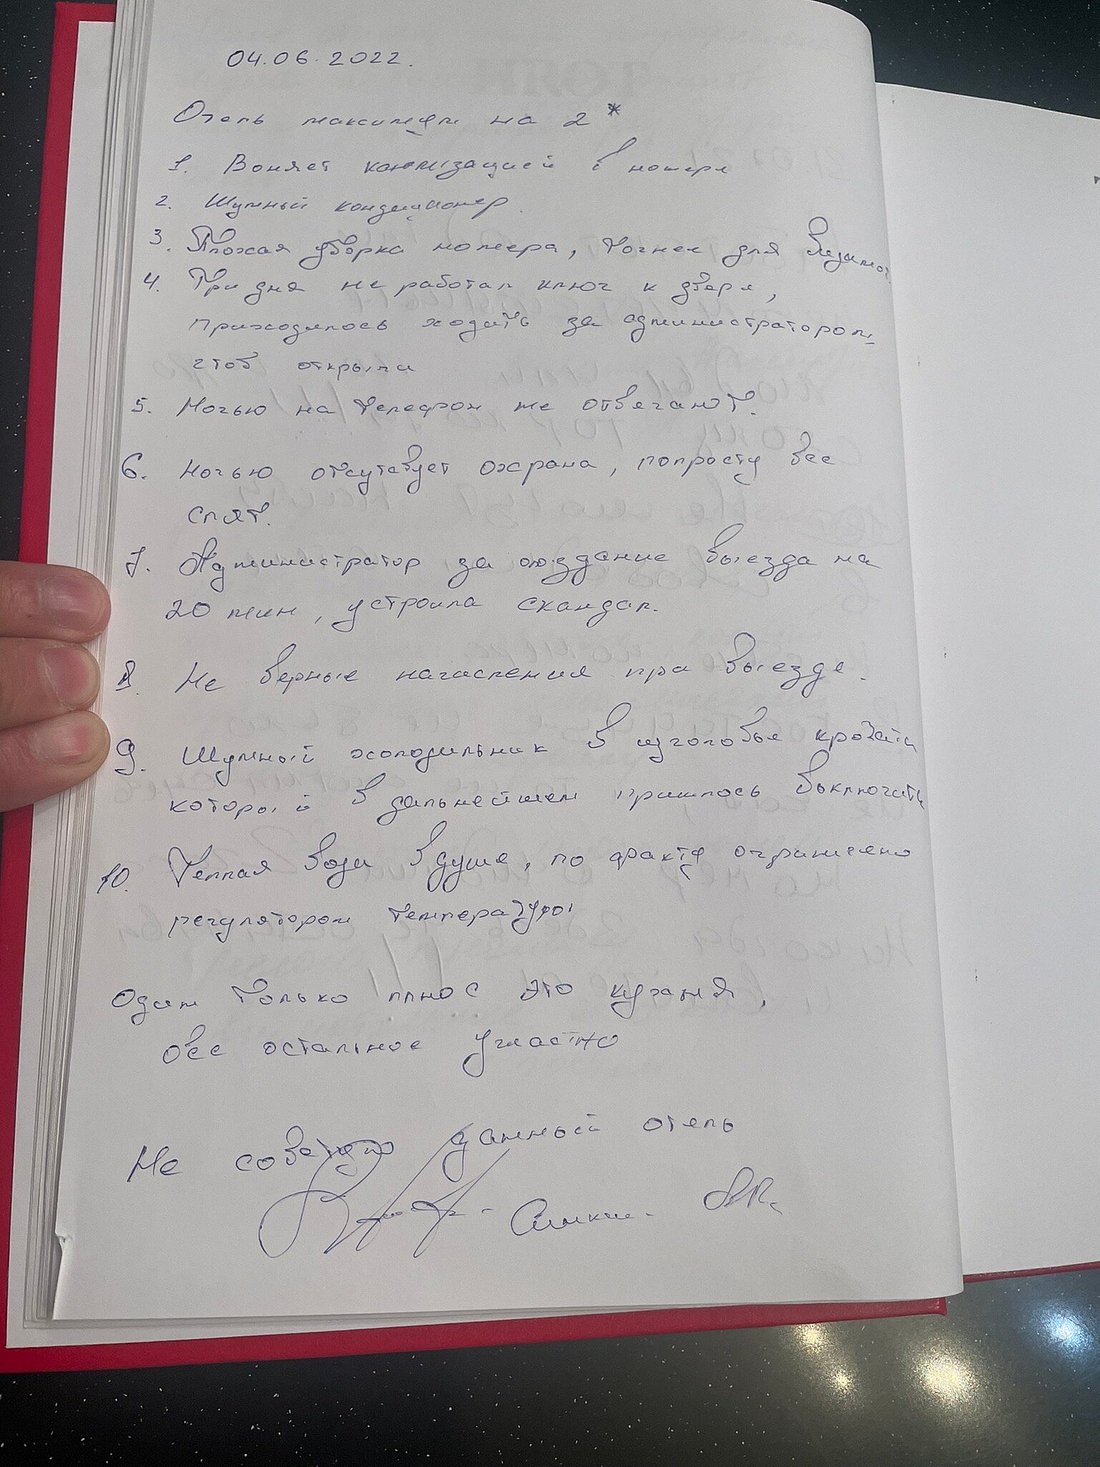 04.06.2022.
Отель максимум на 2*
1. Воняет канализацией в номере
2. Шумный кондиционер.
3. Плохая уборка номера, точнее для видимо
4. Три дня не работал ключ к двери,
приходилось ходить за администратором,
чтоб открыли
5. Ночью на телефон не отвечают.
6. Ночью отсутствует охрана, попросту все
спят.
7. Администратор за опоздание выезда на
20 мин, устроила скандал.
8. Не верные начисления при выезде.
9. Шумный холодильник в изголовье кровати
который в дальнейшем пришлось выключить
10. Теплая вода в душе, по факту ограничено
регулятором температуры
Один только плюс это кухня,
все остальное ужастно
Не советую данный отель